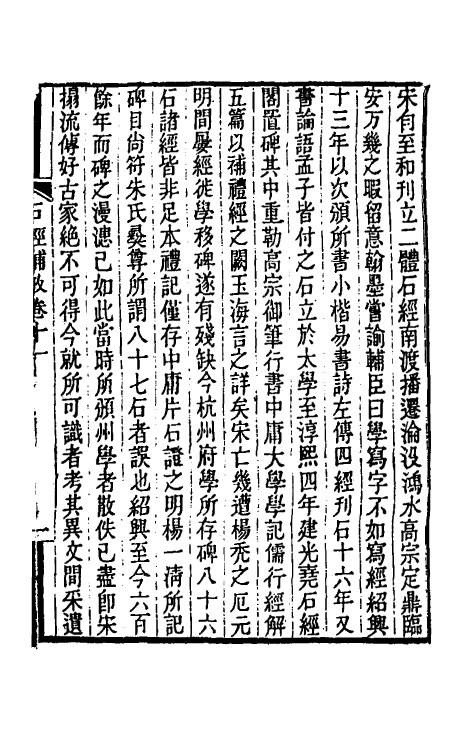 宋自至和刊立二體石經南渡播遷淪沒鴻水高宗定鼎臨
安万幾之暇留意翰墨嘗諭輔臣曰學寫字不如寫經紹興
十三年以次頒所書小楷易書詩左傳四經刊石十六年又
書論語孟子皆付之石立於太學至淳熙四年建光堯石經
閣置碑其中重勒高宗御筆行書中庸大學學記儒行經解
五篇以補禮經之闕玉海言之詳矣宋亡幾遭楊禿之厄元
明間屢經徙學移碑遂有殘缺今杭州府學所存碑八十六
石諸經皆非足本禮記僅存中庸片石證之明楊一淸所記
碑目尙符朱氏彝尊所謂八十七石者誤也紹興至今六百
餘年而碑之漫漶已如此當時所頒州學者散佚已盡卽宋
搨流傳好古家絶不可得今就所可識者考其異文間采遺
石經補攷卷十一